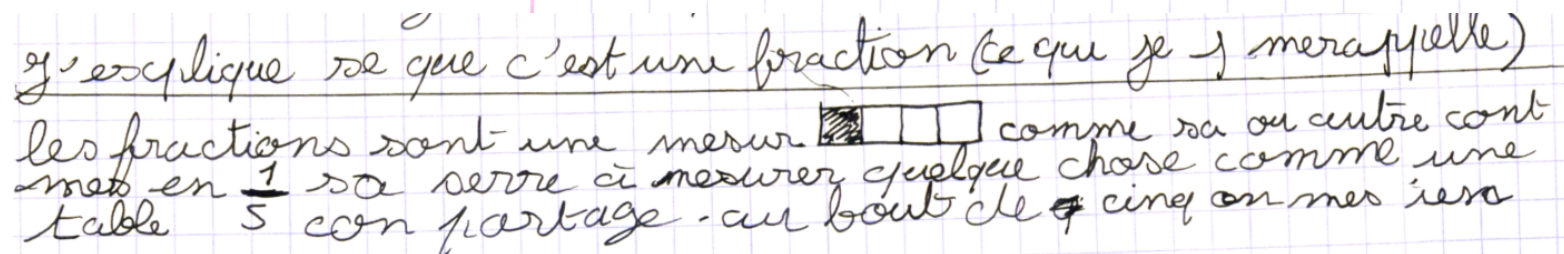 J'esxplique se que c'est une fraction (ce que je merappelle)
les fractions sont une mesur comme sa ou autre cont
mes en 1/5 sa serre à mesurer quelque chose comme une
table con partage. au bout de cinq on mes